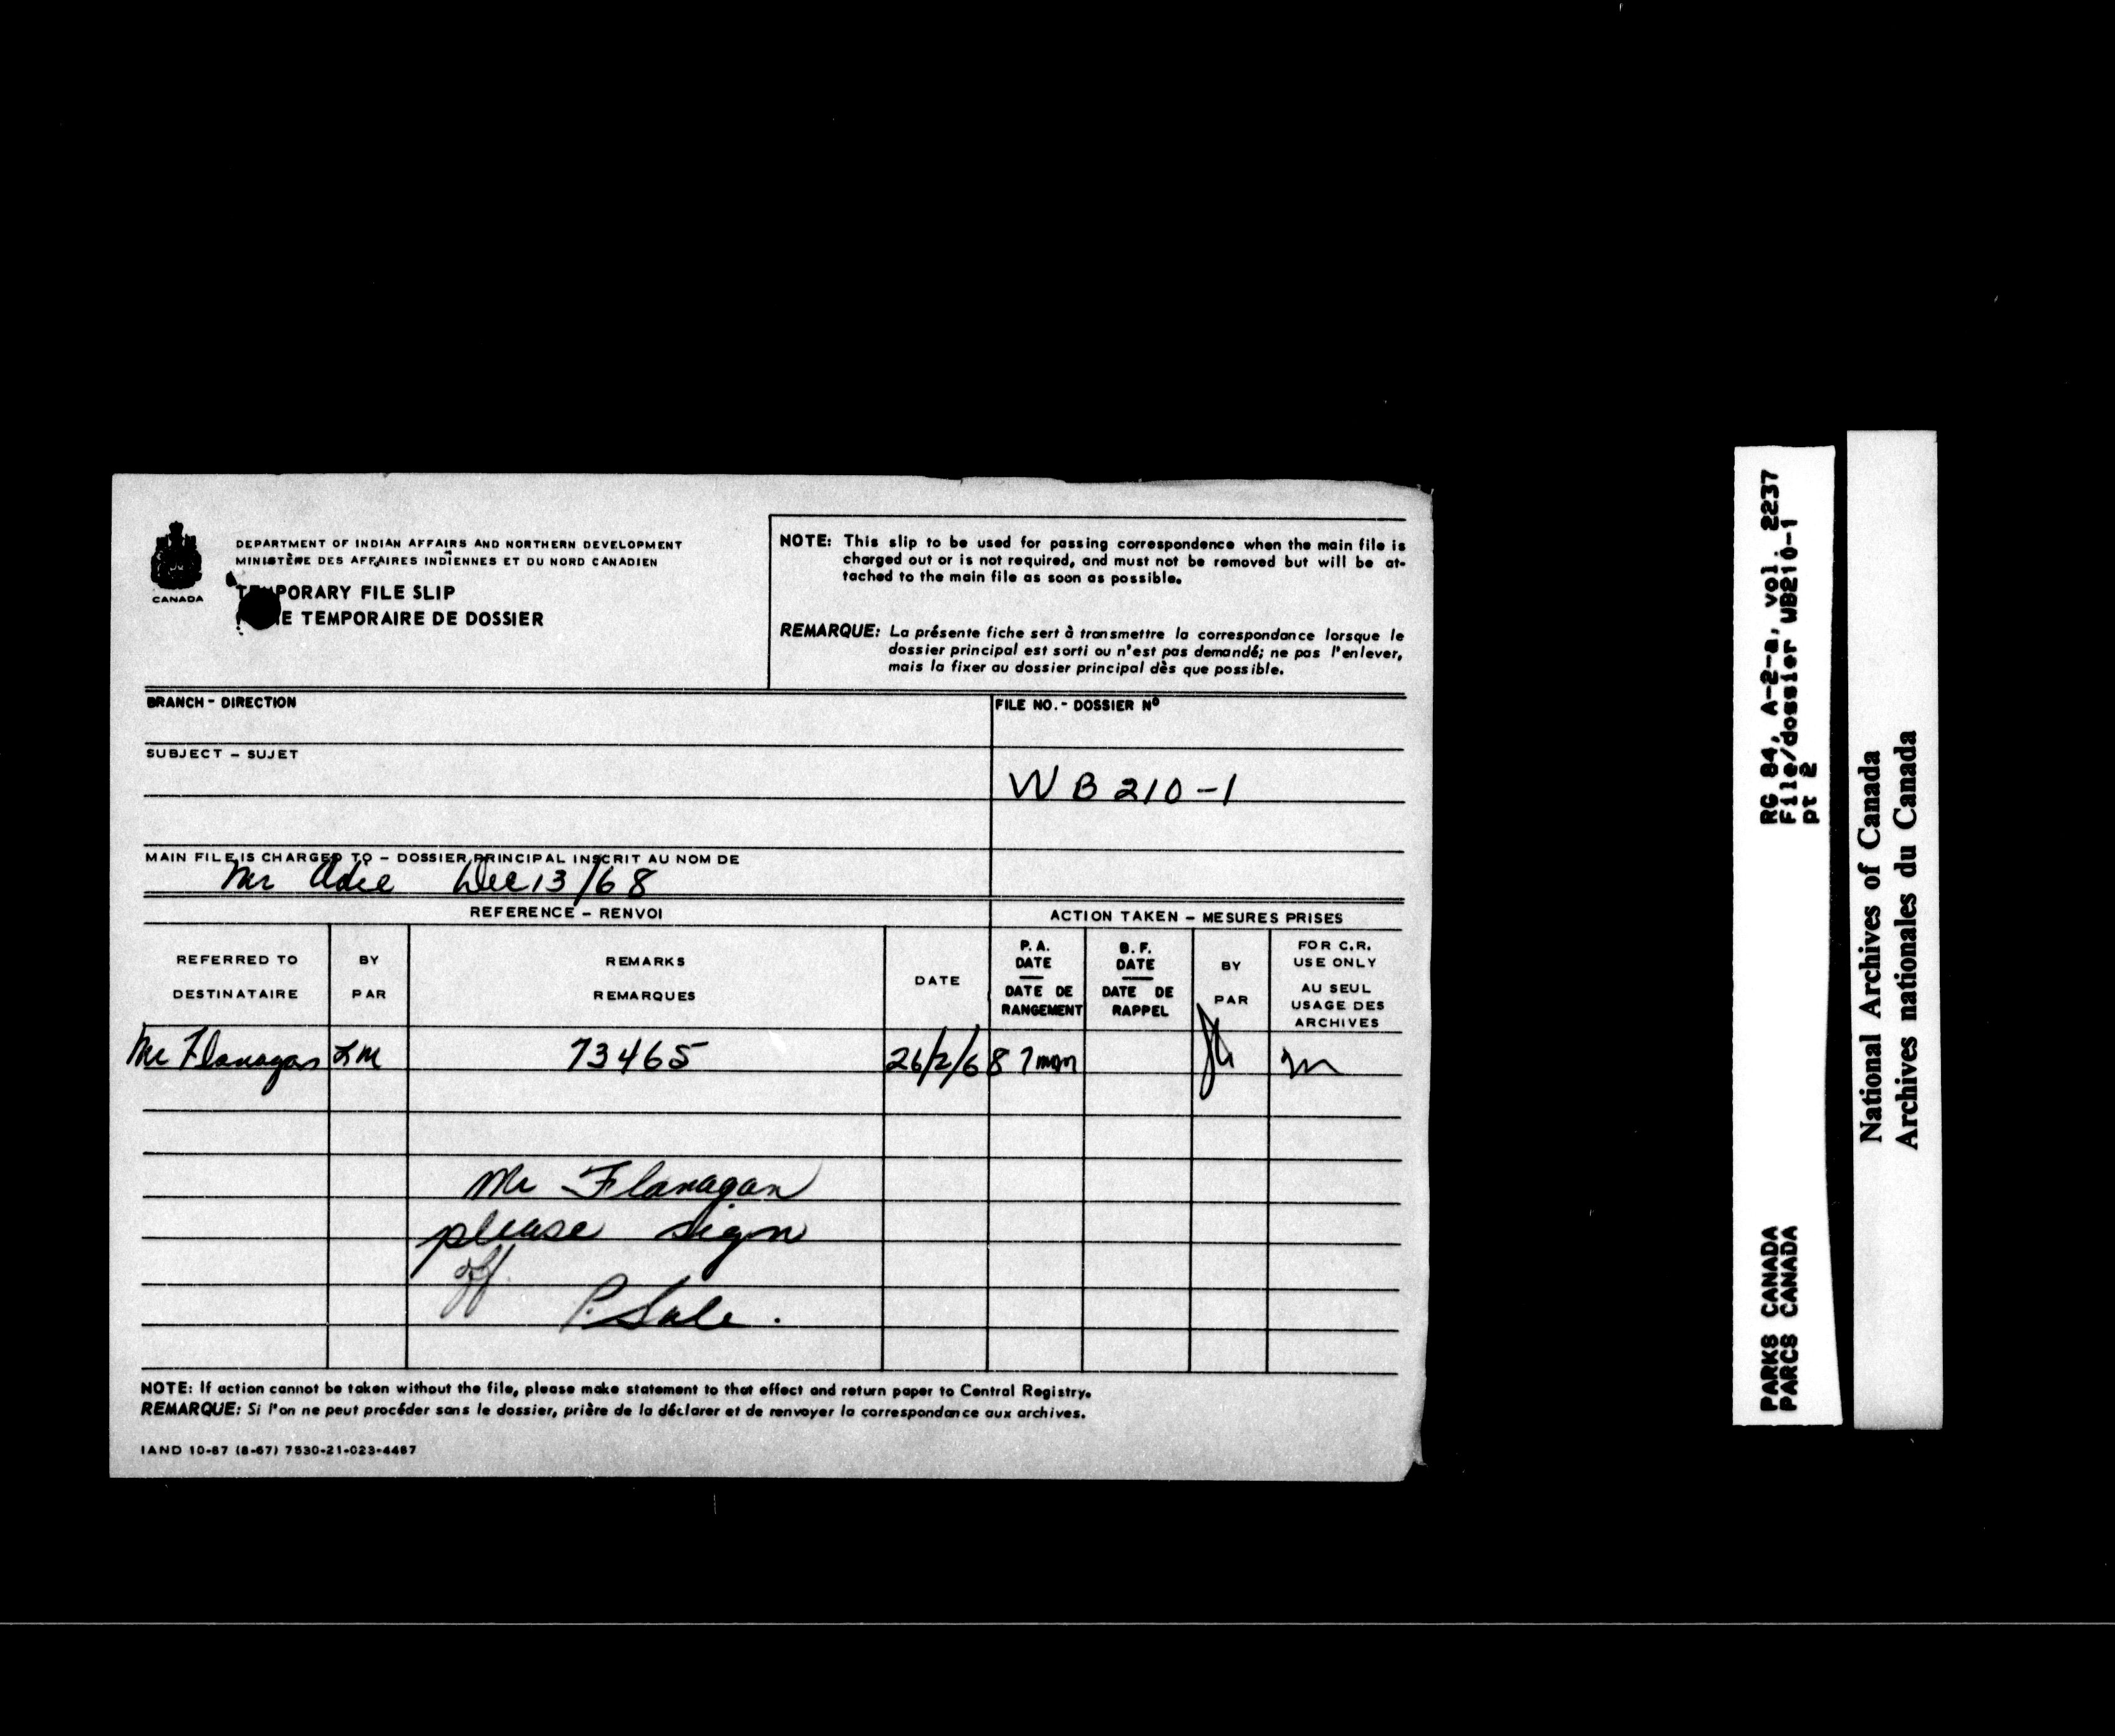 DEPARTMENT OF INDIAN AFFAIRS AND NORTHERN DEVELOPMENT
MINISTÈRE DES AFFAIRES INDIENNES ET DU NORD CANADIEN
CANADA
TEMPORARY FILE SLIP
TEMPORAIRE DE DOSSIER
NOTE: This slip to be used for passing correspondence when the main file is
charged out or is not required, and must not be removed but will be at-
tached to the main file as soon as possible.
REMARQUE: La présente fiche sert à transmettre la correspondance lorsque le
dossier principal est sorti ou n'est pas demandé; ne pas l'enlever,
mais la fixer au dossier principal dès que possible.
BRANCH - DIRECTION
FILE NO. - DOSSIER Nº
SUBJECT - SUJET
WB 210-1
MAIN FILE IS CHARGED TO - DOSSIER PRINCIPAL INSCRIT AU NOM DE
Mr Adie Dec 13/68
REFERENCE - RENVOI
ACTION TAKEN - MESURES PRISES
REFERRED TO
DESTINATAIRE
BY
PAR
REMARKS
REMARQUES
DATE
P.A.
DATE
DATE DE
RANGEMENT
B.F.
DATE
DATE DE
RAPPEL
BY
PAR
FOR C.R.
USE ONLY
AU SEUL
USAGE DES
ARCHIVES
Mr Flanagan LM 73465 26/2/68
Mr Flanagan
please sign
off
P. Sale.
NOTE: If action cannot be taken without the file, please make statement to that effect and return paper to Central Registry.
REMARQUE: Si l'on ne peut procéder sans le dossier, prière de la déclarer et de renvoyer la correspondance aux archives.
IAND 10-87 (8-67) 7530-21-023-4487
RG 84, A-2-a, vol. 2237
File/dossier WB210-1
pt 2
PARKS CANADA
PARCS CANADA
National Archives of Canada
Archives nationales du Canada